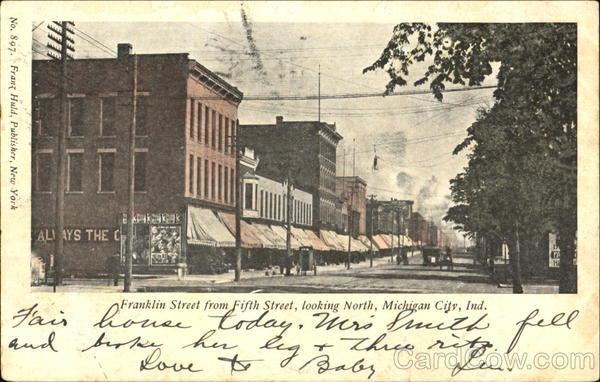 No. 897. Franz Huld, Publisher, New York
ALWAYS THE
Franklin Street from Fifth Street, looking North, Michigan City, Ind.
Fair house today. Mrs Smith fell
and broke her leg & three ribs.
Love to Baby
CardCow.com